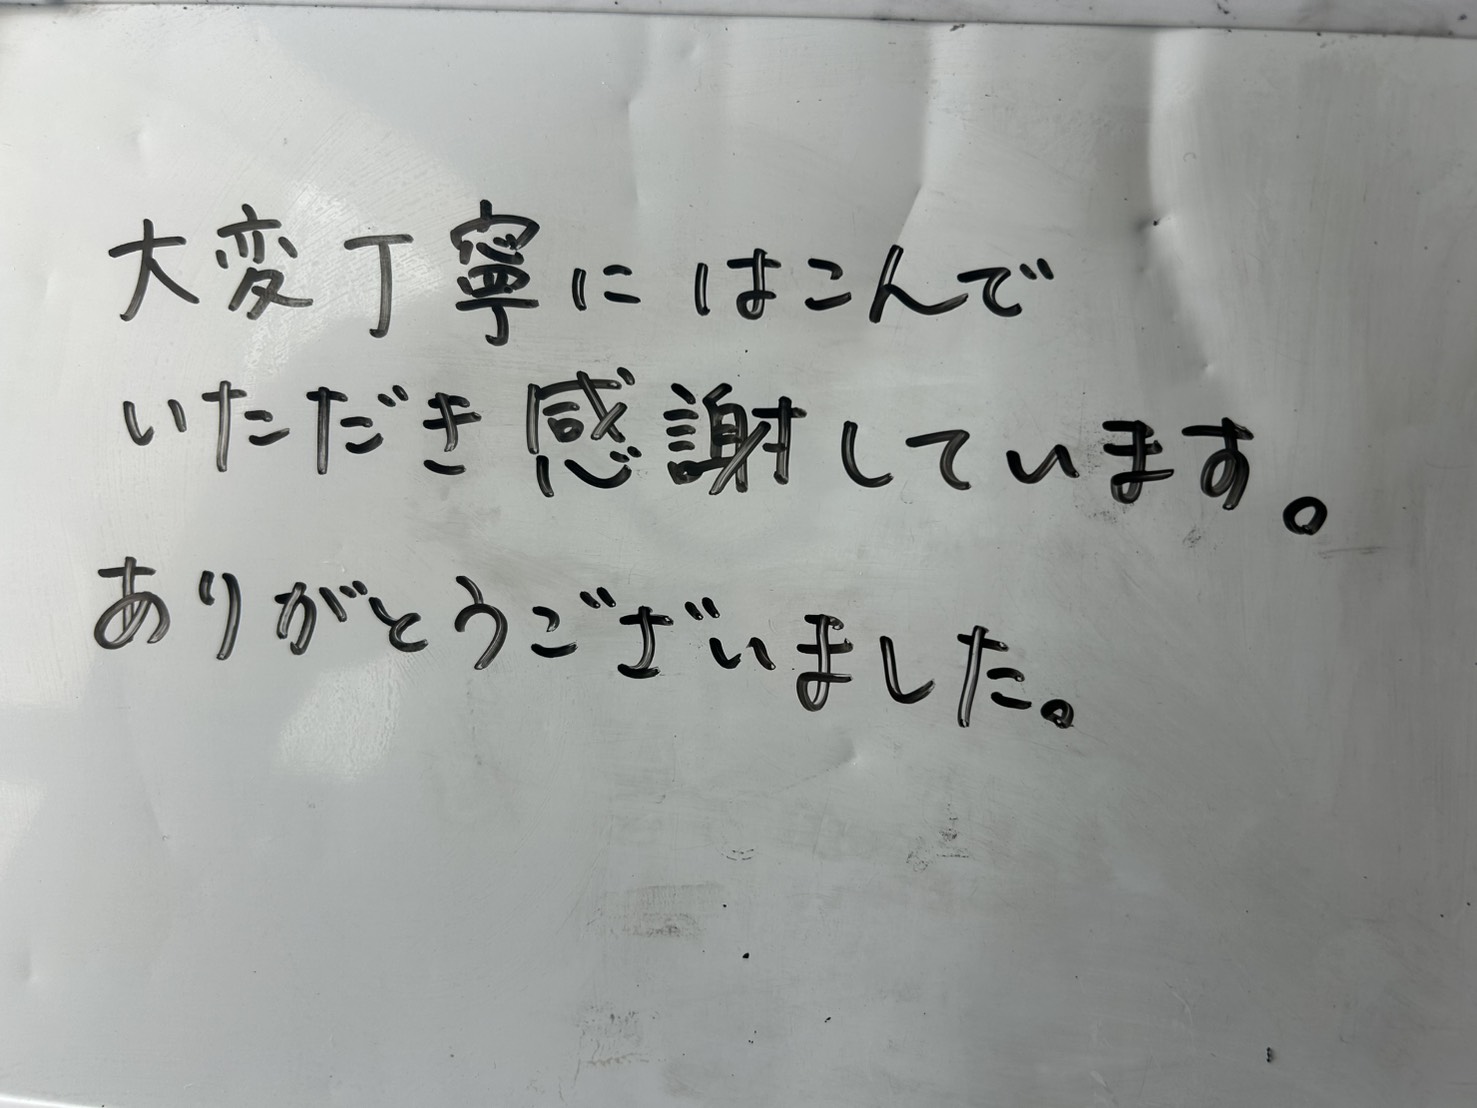 大変丁寧にはこんで
いただき感謝しています。
ありがとうございました。